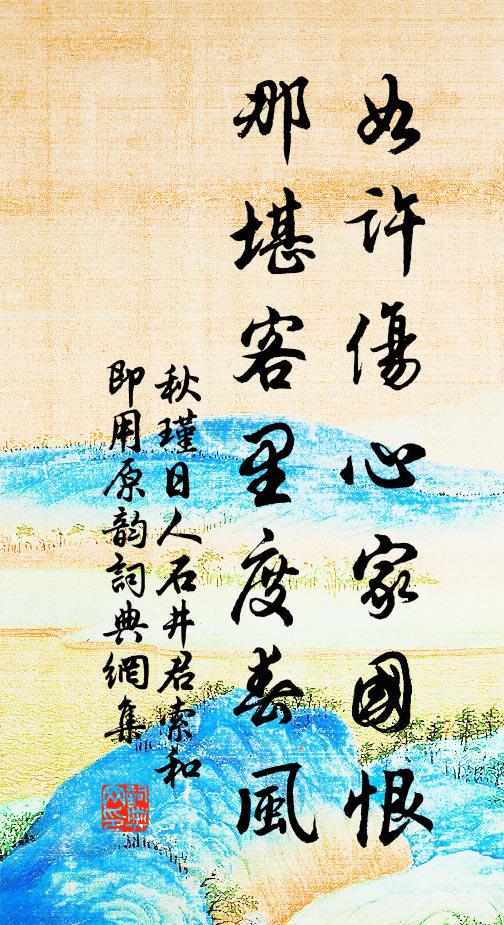 如許傷心家國恨
那堪客里度春風
秋瑾日人石井君索和
即用原韵詞典網集